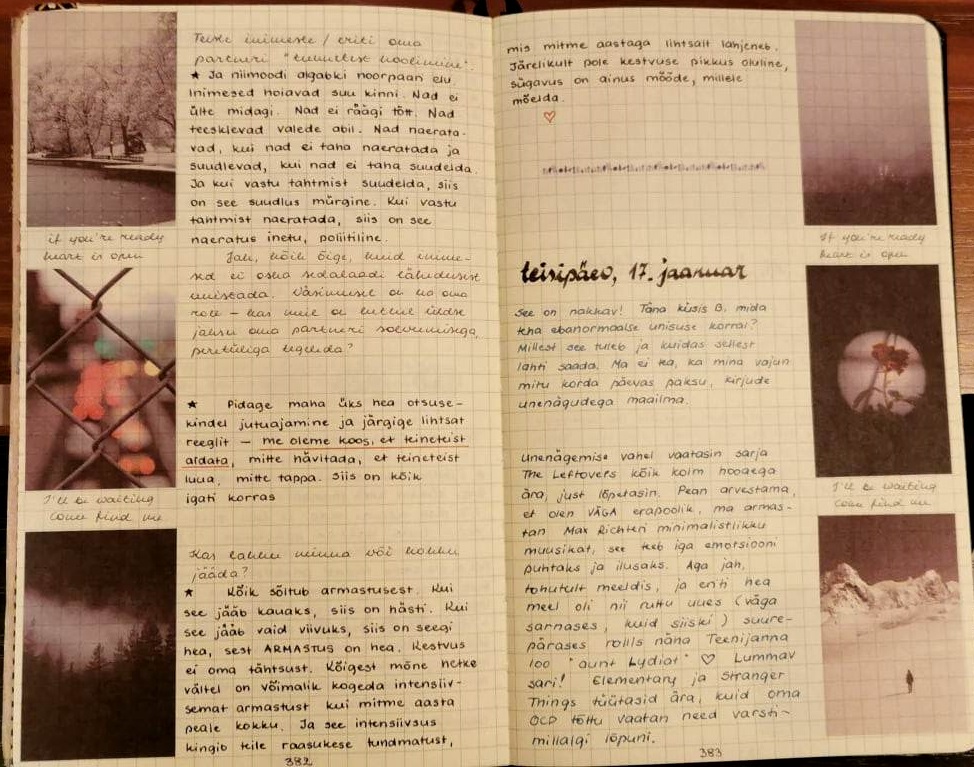 Teiste inimeste / eriti oma
partneri "tunnetest hoolimine".
★ Ja niimoodi algabki noorpaari elu
Inimesed hoiavad suu kinni. Nad ei
ütle midagi. Nad ei räägi tõtt. Nad
teesklevad valede abil. Nad naerata-
vad, kui nad ei taha naeratada ja
suudlevad, kui nad ei taha suudelda.
Ja kui vastu tahtmist suudelda, siis
on see suudlus mürgine. Kui vastu
tahtmist naeratada, siis on see
naeratus inetu, poliitiline.
Jah, kõik õige, kuid inime-
sed ei oska sedalaadi
unistada. Väsimusel on ka oma
roll – kas meil on tahtmist üldse
jaksu oma partneri
pereeluga tegeleda?
★ Pidage maha üks hea otsuse-
kindel jutuajamine ja järgige lihtsat
reeglit – me oleme koos, et teineteist
aidata, mitte hävitada, et teineteist
luua, mitte tappa. Siis on kõik
igati korras
Kas lahku minna või kokku
jääda?
★ Kõik sõltub armastusest. Kui
see jääb kauaks, siis on hästi. Kui
see jääb vaid viivuks, siis on seegi
hea, sest ARMASTUS on hea. Kestvus
ei oma tähtsust. Kõigest mõne hetke
vältel on võimalik kogeda intensiiv-
semat armastust kui mitme aasta
peale kokku. Ja see intensiivsus
kingib teile raasukese tundmatust,
382
if you're ready
heart is open
I'll be waiting
come find me
mis mitme aastaga lihtsalt lahjeneb.
Järelikult pole kestvuse pikkus oluline,
sügavus on ainus mõõde, millele
mõelda.
♡
teisipäev, 17. jaanuar
See on nakkav! Täna küsis B. mida
teha ebanormaalse unisuse korral?
Millest see tuleb ja kuidas sellest
lahti saada. Ma ei tea, ka mina vajun
mitu korda päevas paksu, kirjude
unenägudega maailma.
Unenägemise vahel vaatasin sarja
The Leftovers kõik kolm hooaega
ära, just lõpetasin. Pean arvestama,
et olen VÄGA erapoolik, ma armas-
tan Max Richteri minimalistlikku
muusikat, see teeb iga emotsiooni
puhtaks ja ilusaks. Aga jah,
tohutult meeldis, ja eriti hea
meel oli nii ruttu uues (väga
sarnases, kuid siiski) suure-
pärases rollis näha Teenijanna
loo "aunt Lydiat" ♡ Lummav
sari! Elementary ja Stranger
Things tüütasid ära, kuid oma
OCD tõttu vaatan need varsti-
millalgi lõpuni.
383
If you're ready
heart is open
I'll be waiting
come find me